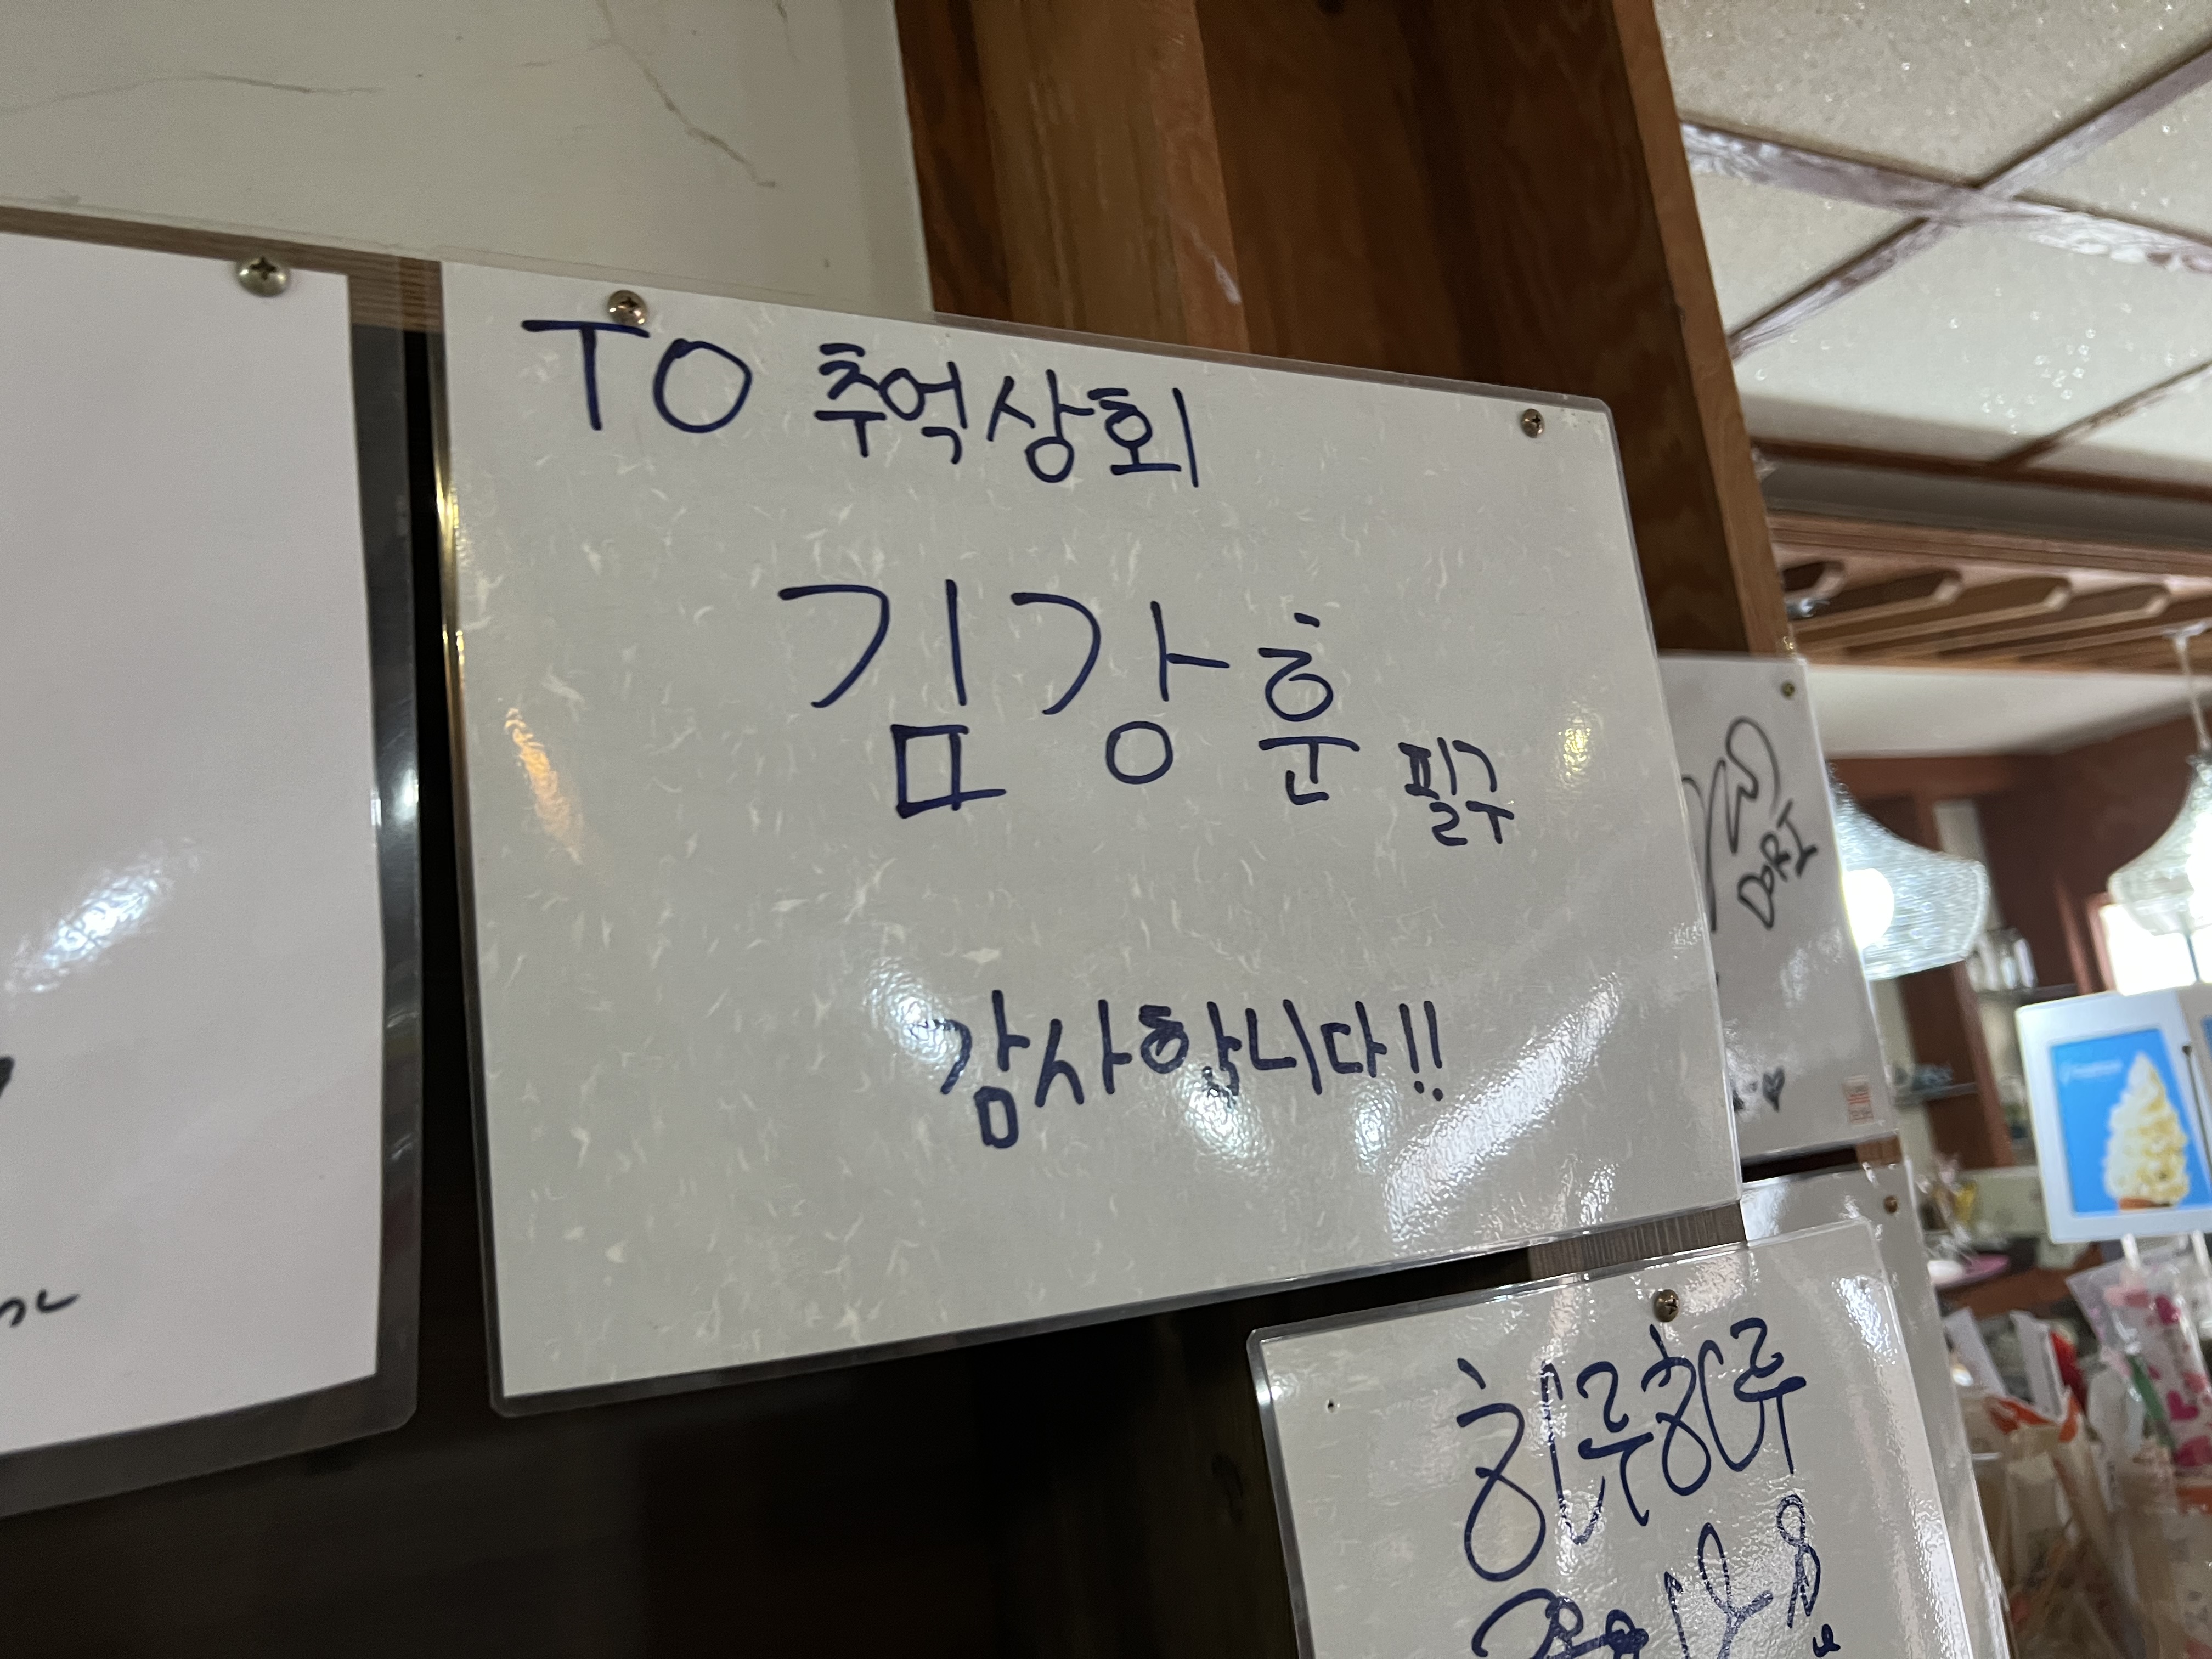 TO 추억상회
김강훈 필구
감사합니다!!
DORI
하루하루